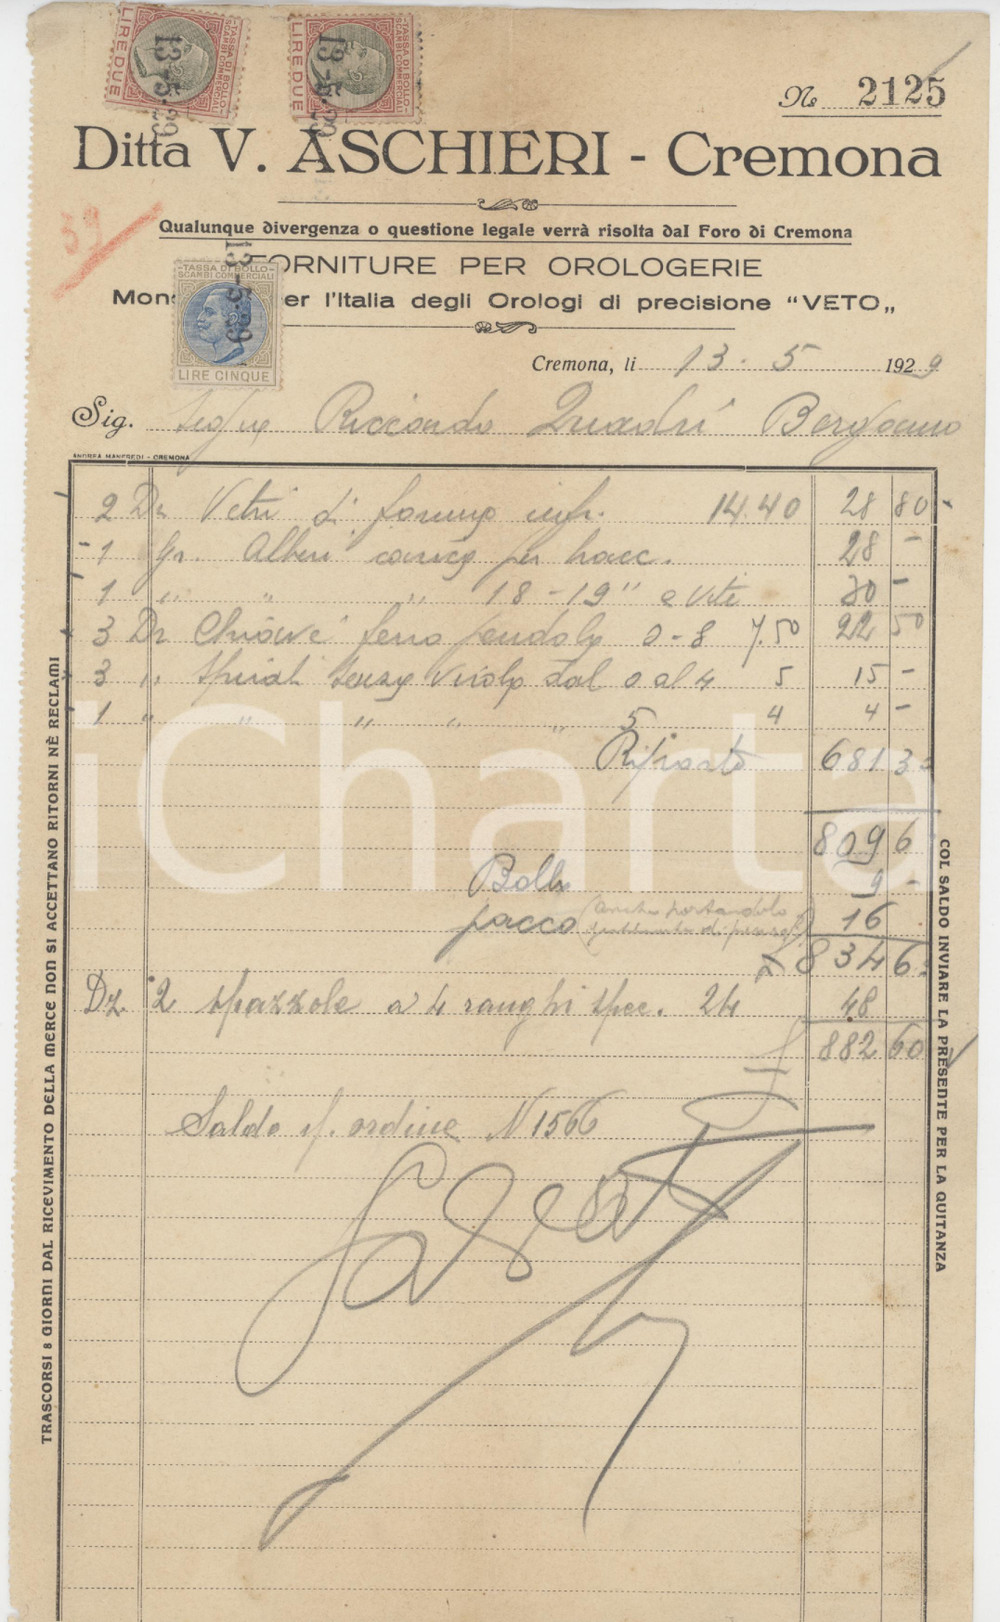 TASSA DI BOLLO
SCAMBI COMMERCIALI
LIRE DUE
13-5-29
TASSA DI BOLLO
SCAMBI COMMERCIALI
LIRE DUE
13-5-29
No 2125
Ditta V. ASCHIERI - Cremona
39
Qualunque divergenza o questione legale verrà risolta dal Foro di Cremona
FORNITURE PER OROLOGERIE
Mon er l'Italia degli Orologi di precisione "VETO„
TASSA DI BOLLO
SCAMBI COMMERCIALI
LIRE CINQUE
13-5-29
Cremona, li 13.5 1929
Sig. Riccardo Quadri Bergamo
ANDREA MANFREDI - CREMONA
2 Dz Vetri di forma 14.40 28 80
1 Gr. Alberi carica per bracc. 28 -
1 " " " 18-19''' e viti 30 -
3 Dz Chiavi ferro pendola 0-8 7.50 22 50
3 " Spirali senza virola dal 0 al 4 5 15 -
1 " " " " " 5 4 4 -
Riporto 681 3
809 6
Bollo 9 -
pacco 16
834 6
Dz. 2 spazzole a 4 ranghi spec. 24 48
882 60
Saldo s/. ordine N 1566
TRASCORSI 8 GIORNI DAL RICEVIMENTO DELLA MERCE NON SI ACCETTANO RITORNI NÈ RECLAMI
COL SALDO INVIARE LA PRESENTE PER LA QUITANZA
iCharta